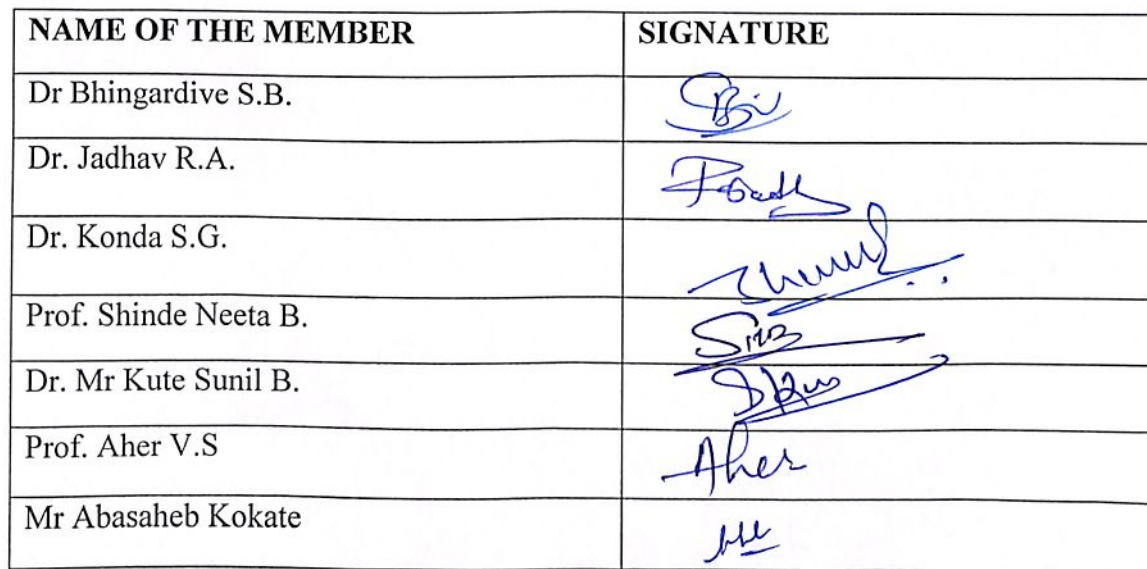 NAME OF THE MEMBER SIGNATURE
Dr Bhingardive S.B.
Dr. Jadhav R.A.
Dr. Konda S.G.
Prof. Shinde Neeta B.
Dr. Mr Kute Sunil B.
Prof. Aher V.S Aher
Mr Abasaheb Kokate